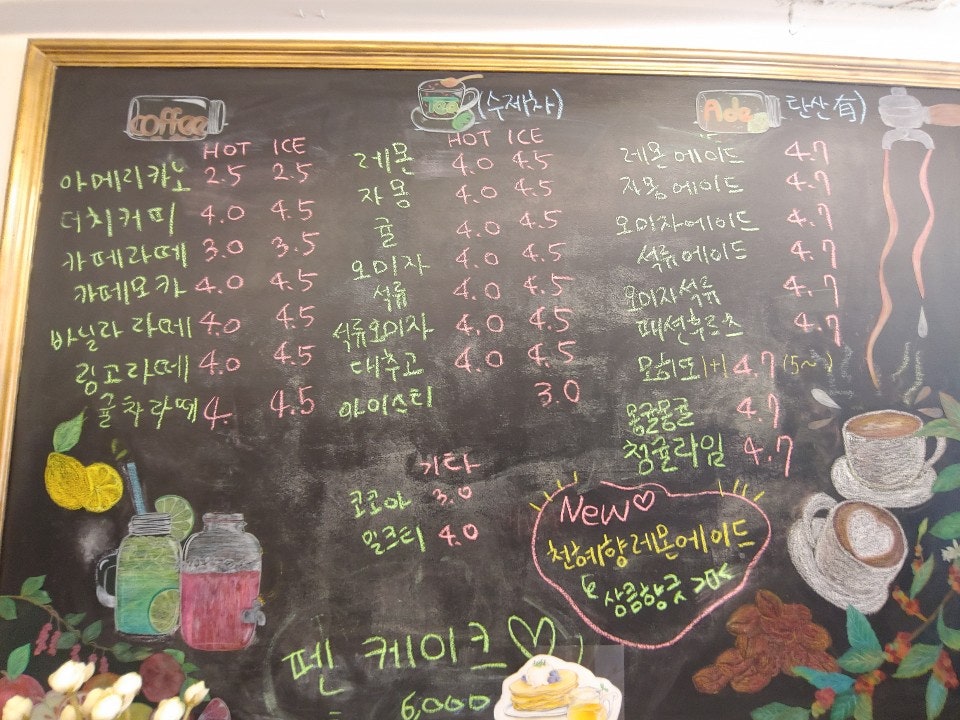 coffee
HOT ICE
아메리카노 2.5 2.5
더치커피 4.0 4.5
카페라떼 3.0 3.5
카페모카 4.0 4.5
바닐라 라떼 4.0 4.5
링고라떼 4.0 4.5
귤차라떼 4. 4.5
Tea (수제차)
HOT ICE
레몬 4.0 4.5
자몽 4.0 4.5
귤 4.0 4.5
오미자 4.0 4.5
석류 4.0 4.5
석류오미자 4.0 4.5
대추고 4.0 4.5
아이스티 3.0
기타
코코아 3.0
밀크티 4.0
Ade (탄산有)
레몬에이드 4.7
자몽에이드 4.7
오미자에이드 4.7
석류에이드 4.7
오미자석류 4.7
패션후르츠 4.7
모히또 1+1 4.7 (5~)
몽귤몽귤 4.7
청귤라임 4.7
New♡
천혜향레몬에이드
상큼향긋 >0<
펜 케이크♡
6,000